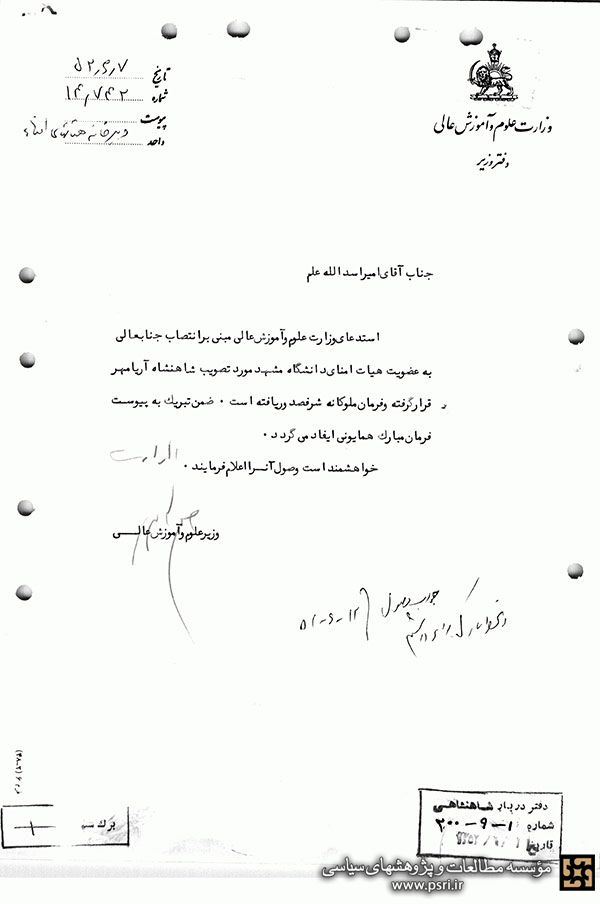 وزارت علوم و آموزش عالی
دفتر وزیر
تاریخ ۵۲٫۶٫۷
شماره ۱۴٫۷۴۲
پیوست
واحد دبیرخانه هیئتهای امناء
جناب آقای امیراسدالله علم
استدعای وزارت علوم و آموزش عالی مبنی بر انتصاب جنابعالی
به عضویت هیات امنای دانشگاه مشهد مورد تصویب شاهنشاه آریامهر
قرارگرفته و فرمان ملوکانه شرفصدور یافته است . ضمن تبریک به پیوست
فرمان مبارک همایونی ایفاد می گردد .
خواهشمند است وصول آنرا اعلام فرمایند .
با ارادت
وزیر علوم و آموزش عالی
جواب وصول
۵۲-۶-۱۲
برگ سبز
۱
دفتر دربار شاهنشاهی
شماره ۲۰۰-۹-۱
تاریخ
مؤسسه مطالعات و پژوهشهای سیاسی
www.psri.ir